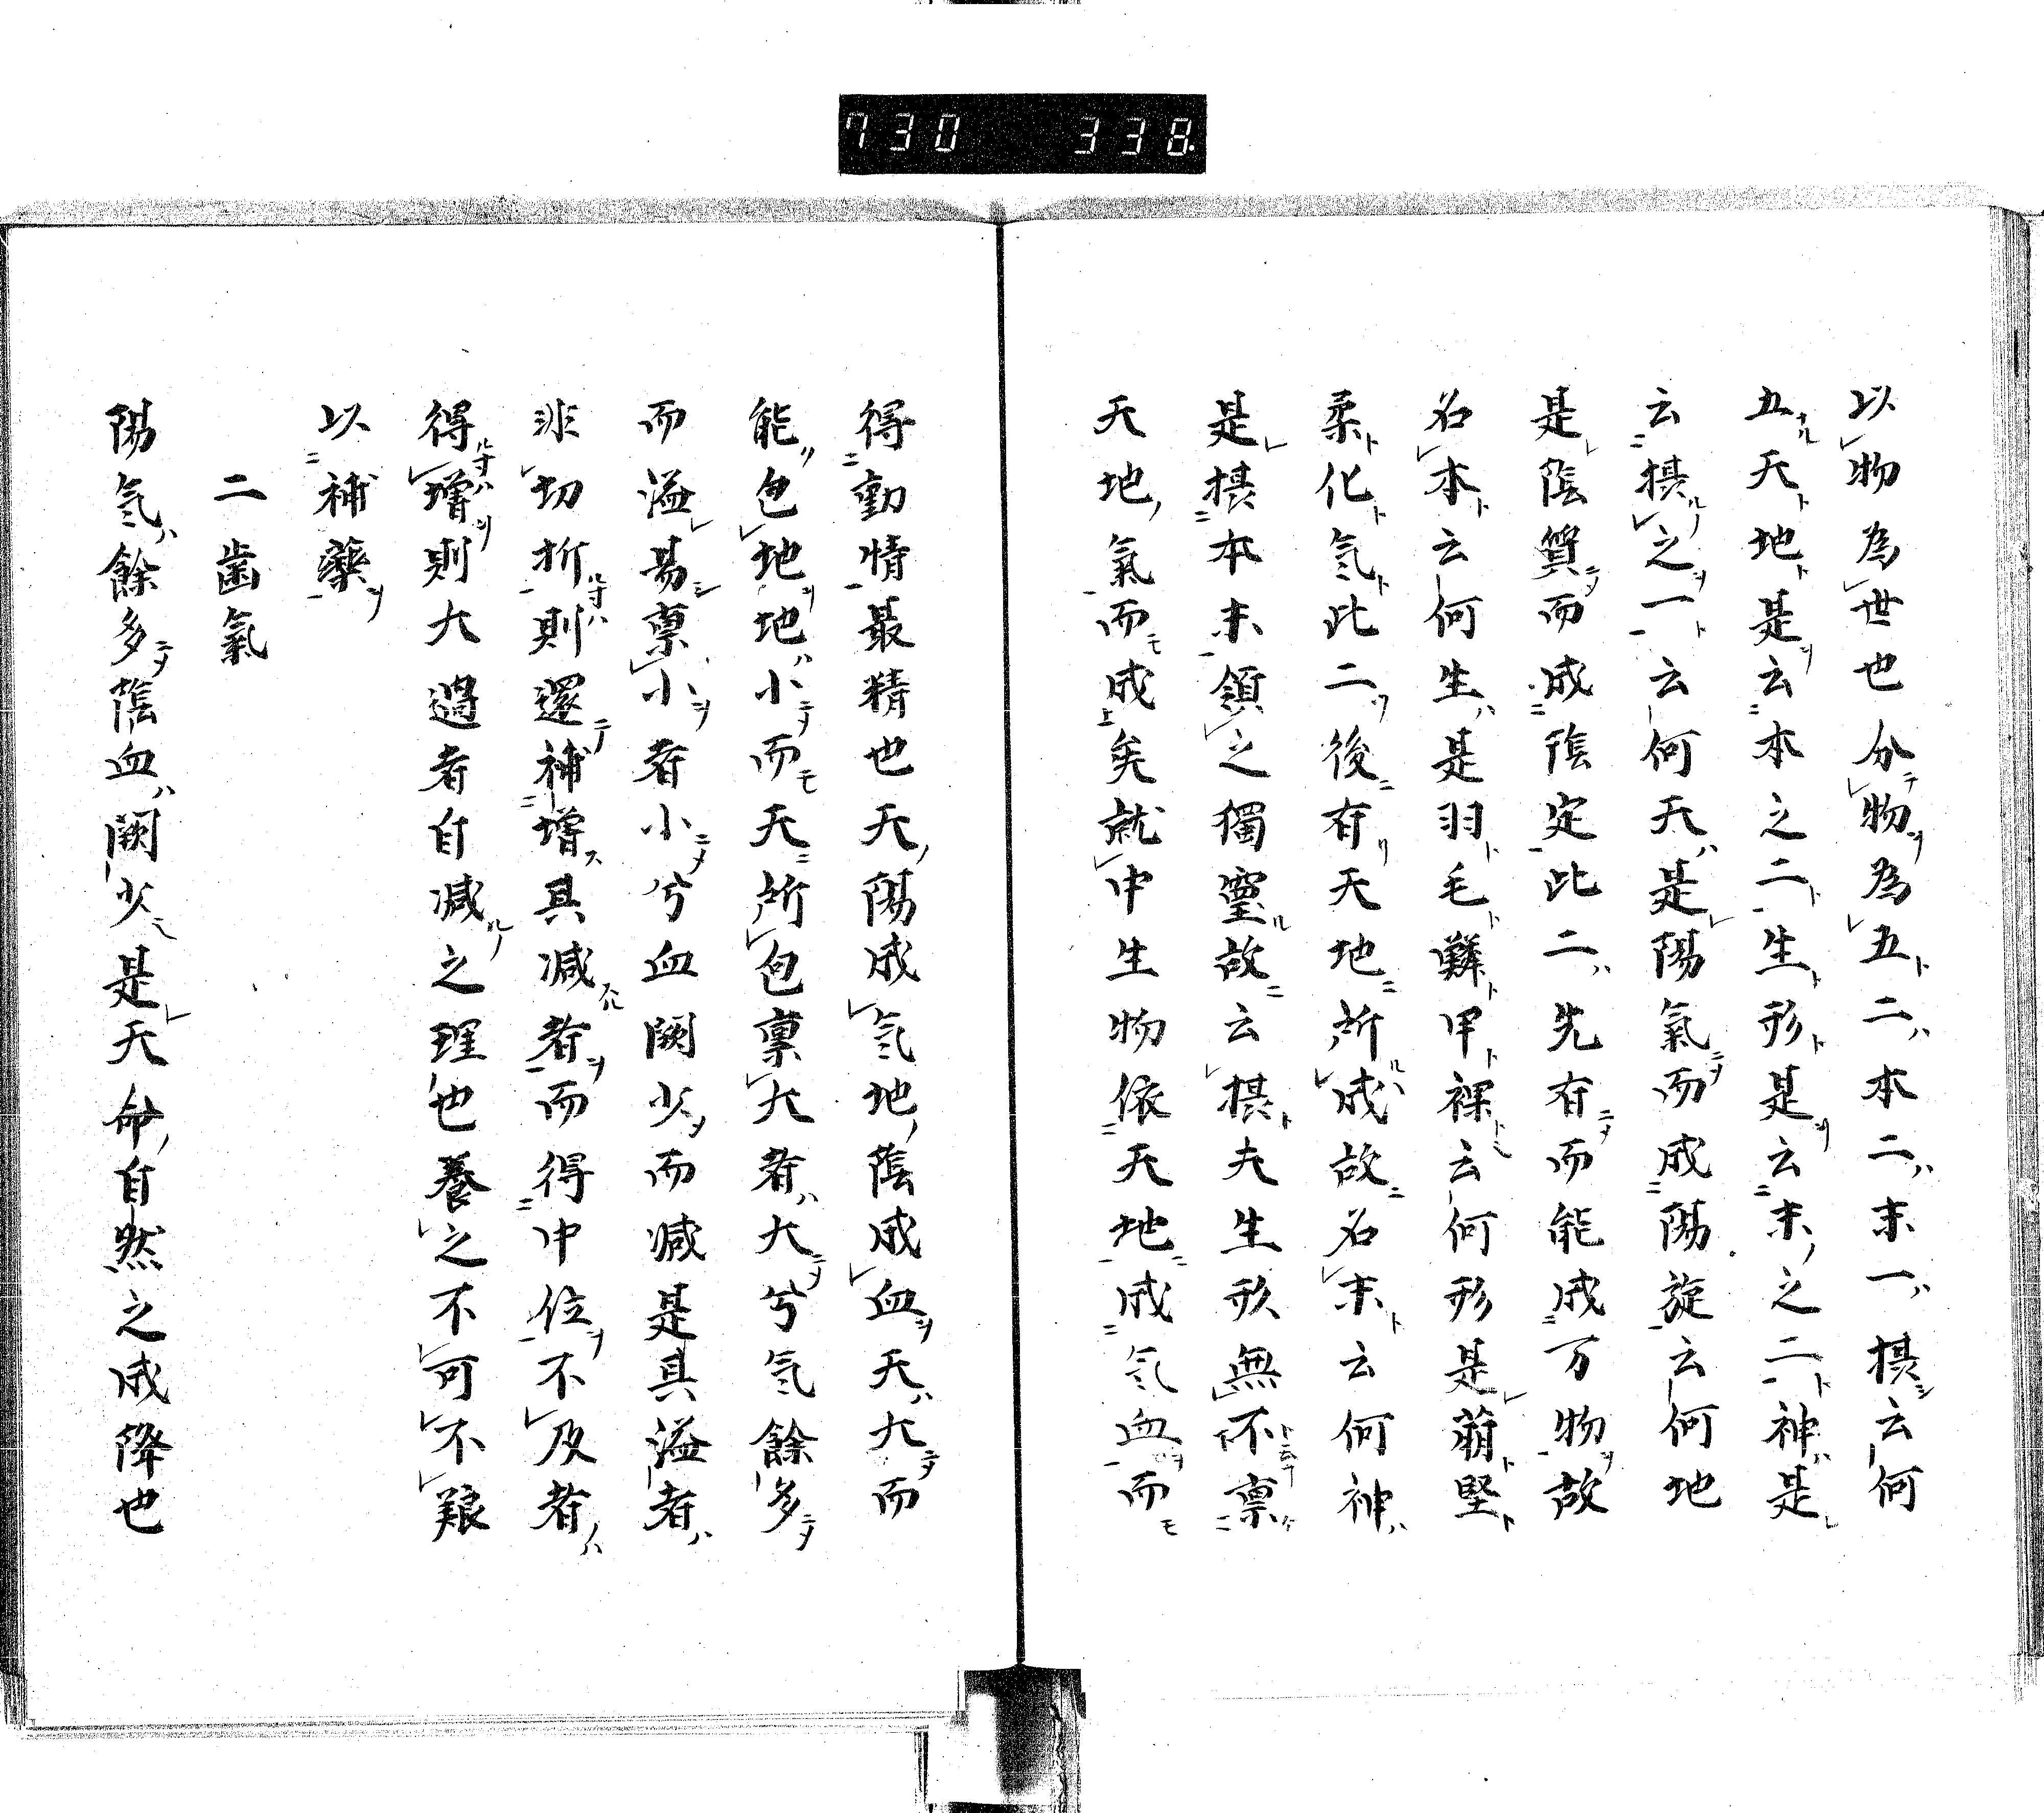 730 338
以物為世也分物為五二本二末一摂云何
五天地是云本之二生形是云末之二神是
云摂之一云何天是陽氣而成陽旋云何地
是陰質而成陰定此二先有而能成万物故
名本云何生是羽毛鱗甲裸云何形是蒻堅
柔化気此二後有天地所成故名末云何神
是摂本末領之獨靈故云摂夫生形無不禀
天地氣而成矣就中生物依天地成気血而
得動情最精也天陽成気地陰成血天大而
能包地地小而天所包禀大者大兮気餘多
而溢易禀小者小兮血闕少而減是具溢者
非切折則還補増具減者而得中位不及者
得増則大過者自減之理也養之不可不艱
以補藥
二歯氣
陽気餘多陰血闕少是天命自然之成降也